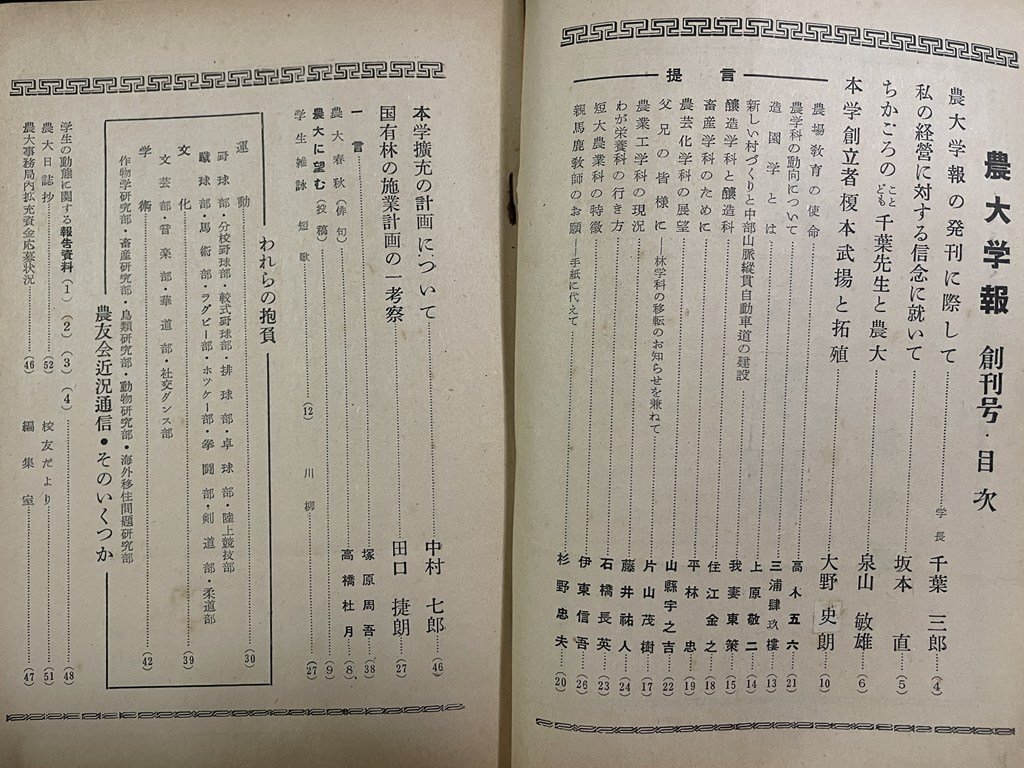 農大学報 創刊号・目次
農大学報の発刊に際して……学長 千葉三郎…(4)
私の経営に対する信念に就いて……坂本 直…(5)
ちかごろのことども千葉先生と農大……泉山敏雄…(6)
本学創立者榎本武揚と拓殖……大野史朗…(10)
提言
農場教育の使命……高木五六…(21)
農学科の動向について……三浦肆玖樓…(13)
造園学とは……上原敬二…(14)
新しい村づくりと中部山脈縦貫自動車道の建設……我妻東策…(15)
醸造学科と醸造科……住江金之…(18)
畜産学科のために……平林 忠…(19)
農芸化学科の展望……山縣宇之吉…(22)
父兄の皆様に――林学科の移転のお知らせを兼ねて……片山茂樹…(17)
農業工学科の現況……藤井祐人…(24)
わが栄養科の行き方……石橋長英…(23)
短大農業科の特徴……伊東信吾…(26)
親馬鹿教師のお願――手紙に代えて……杉野忠夫…(20)
本学擴充の計画について……中村七郎…(46)
国有林の施業計画の一考察……田口捷朗…(27)
一言……塚原周吾…(38)
農大春秋(俳句)……高橋杜月…(8)
農大に望む(投稿)……(9)
学生雑詠 短歌……(12) 川柳……(27)
われらの抱負
運動……(30)
野球部・分校野球部・軟式野球部・排球部・卓球部・陸上競技部
蹴球部・馬術部・ラグビー部・ホッケー部・拳闘部・剣道部・柔道部
文化……(39)
文芸部・音楽部・華道部・社交ダンス部
学術……(42)
作物学研究部・畜産研究部・鳥類研究部・動物研究部・海外移住問題研究部
農友会近況通信・そのいくつか
学生の動態に関する報告資料(1)(2)(3)(4)……48
農大日誌抄……(52) 校友だより……(51)
農大事務局内拡充資金応募状況……(46) 編集室……(47)